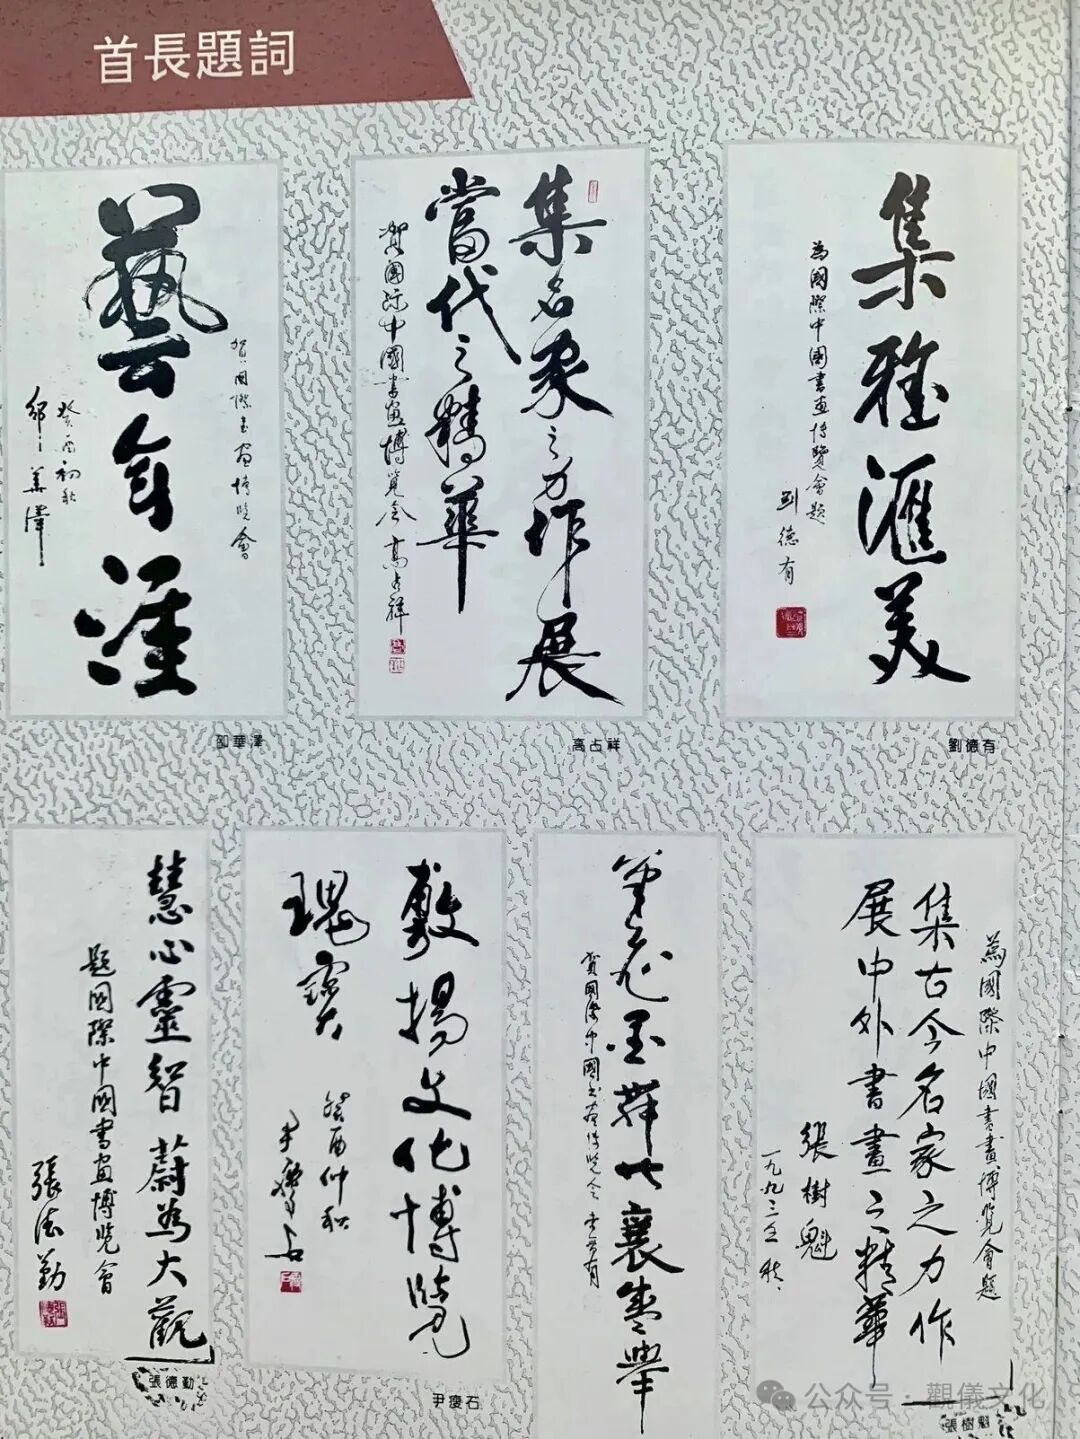 首長題詞
集雅滙美
為國際中國書画博覽會題
劉德有
劉德有
集名家之力作展
當代之精華
賀國际中國書画博览会 高占祥
高占祥
藝無涯
賀國際書画博览會
癸酉初秋
邵華澤
邵華澤
為國際中國書畫博覧會題
集古今名家之力作
展中外書畫之精華
張樹魁
一九九三年秋
張樹魁
筆花墨舞共襄盛舉
賀國際中國书画博览会
敷揚文化博覽
瑰寶
癸酉仲秋
尹瘦石
尹瘦石
慧心靈智蔚為大觀
題國際中國書画博览會
張德勤
張德勤
公众号 · 觀儀文化